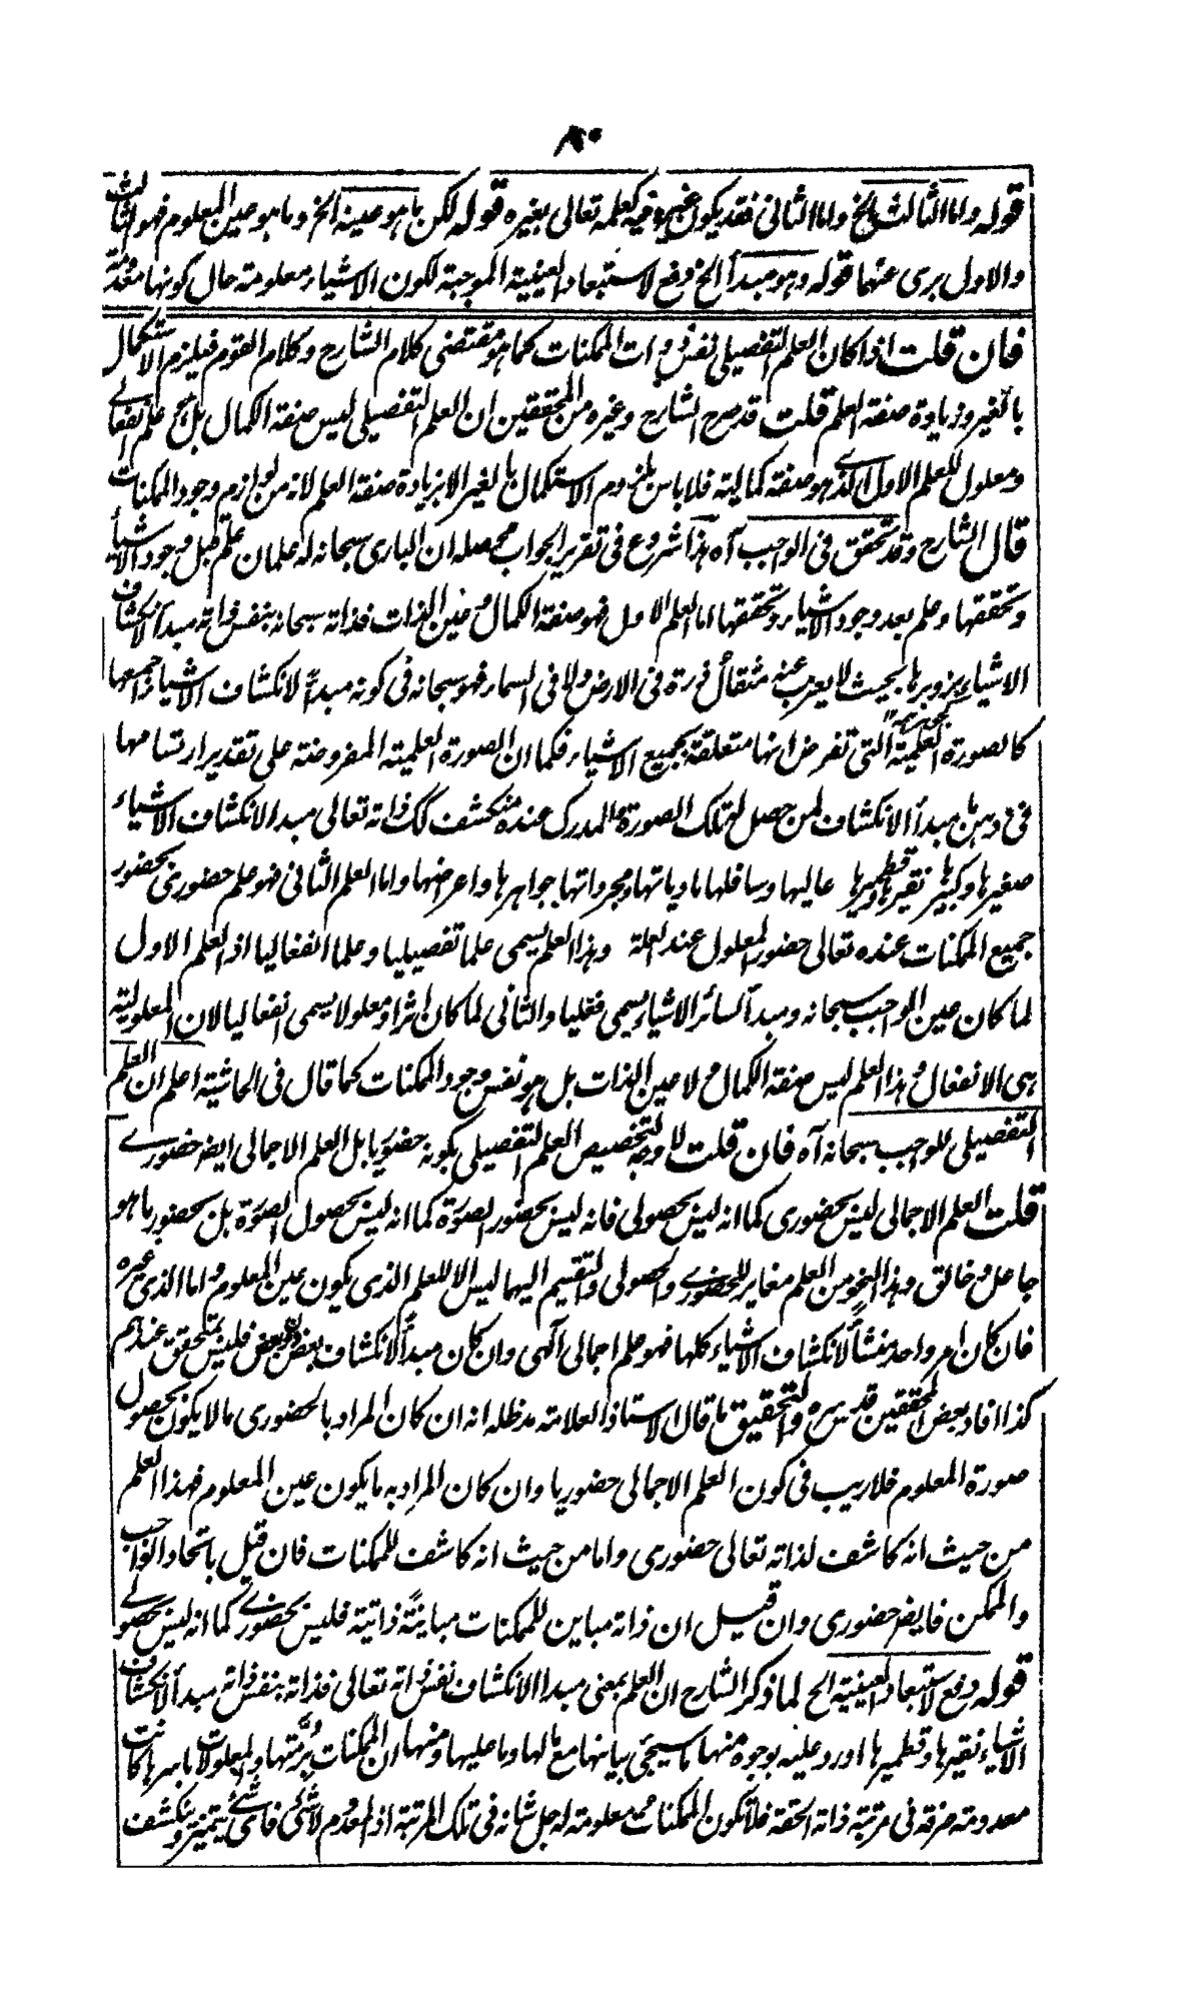 ٨٠
قوله واما الثالث الخ واما الثانی فقد یکون غیره وفیه کعلمه تعالی بغیره قوله لکن ما هو عینه الخ وما هو عین المعلوم فهو الثالث
والاول بری عنهما قوله وهو مبدأ الخ دفع لاستبعاد العینیة الموجبة لکون الاشیاء معلومة حال کونها معدومة
فان قلت اذا کان العلم التفصیلی نفس ذوات الممکنات کما هو مقتضی کلام الشارح وکلام القوم فیلزم الاستکمال
بالغیر وزیادة صفة العلم قلت قد صرح الشارح وغیره من المحققین ان العلم التفصیلی لیس صفة الکمال بل هو علم انفعالے
ومعلول للعلم الاول الذے هو صفة کمالیة فلا باس بلزوم الاستکمال بالغیر الا بزیادة صفة العلم لانه من لوازم وجود الممکنات
قال الشارح وقد تحقق فی الواجب آه هذا شروع فی تقریر الجواب محصله ان الباری سبحانه له علمان علم قبل وجود الاشیاء
وتحققها وعلم بعد وجود الاشیاء وتحققها اما العلم الاول فهو صفة الکمال وعین الذات فذاته سبحانه بنفس ذاته مبدأ لانکشاف
الاشیاء بزوبرها بحیث لا یعزب عنه مثقال ذرة فی الارض ولا فی السماء فهو سبحانه فی کونه مبدأ لانکشاف الاشیاء جمیعها
کالصورة العلمیة التی تفرض انها متعلقة بجمیع الاشیاء فکما ان الصورة العلمیة المفروضة علی تقدیر ارتسامها
فی ذهن ما مبدأ الانکشاف لمن حصل له تلک الصورة فالمدرک عنده منکشف کک ذاته تعالی مبدء لانکشاف الاشیاء
صغیرها وکبیرها نقیرها وقطمیرها عالیها وسافلها مادیاتها ومجرداتها جواهرها واعراضها واما العلم الثانی فهو علم حضوری بحضور
جمیع الممکنات عنده تعالی حضور المعلول عند العلة وهذا العلم یسمی علما تفصیلیا وعلما انفعالیا اذ العلم الاول
لما کان عین الواجب سبحانه ومبدأ لسائر الاشیاء یسمی فعلیا والثانی لما کان اثرا ومعلولا یسمی انفعالیا لان المعلولیة
هی الانفعال وهذا العلم لیس صفة الکمال ولا عین الذات بل هو نفس وجود الممکنات کما قال فی الحاشیة اعلم ان العلم
التفصیلی للواجب سبحانه آه فان قلت لا وجه لتخصیص العلم التفصیلی بکونه حضوریا بل العلم الاجمالی ایضا حضورے
قلت العلم الاجمالی لیس بحضوری کما انه لیس بحصولی فانه لیس بحضور الصورة کما انه لیس بحصول الصورة بل بحضور ما هو
جاعل وخالق وهذا النحو من العلم مغایر للحضورے والحصولی والتقسیم الیهما لیس الا للعلم الذی یکون عین المعلوم واما الذی غیره
فان کان امر واحد منشأ لانکشاف الاشیاء کلها فهو علم اجمالی آلهی وان کان مبدأ لانکشاف بعض دون بعض فلیس بمتحقق عندهم
کذا افاد بعض المحققین قدس سره والتحقیق ما قال الاستاذ العلامة مدظله انه ان کان المراد بالحضوری ما لا یکون بحصول
صورة المعلوم فلا ریب فی کون العلم الاجمالی حضوریا وان کان المراد به ما یکون عین المعلوم فهذا العلم
من حیث انه کاشف لذاته تعالی حضوری واما من حیث انه کاشف للممکنات فان قیل باتحاد الواجب
والممکن فایضا حضوری وان قیل ان ذاته مباین للممکنات مباینة ذاتیة فلیس بحضورے کما انه لیس بحصولے
قوله دفع لاستبعاد العینیة الخ لما ذکر الشارح ان العلم بمعنی مبدا الانکشاف نفس ذاته تعالی فذاته بنفس ذاته مبدأ لانکشاف
الاشیاء نقیرها وقطمیرها اورد علیه بوجوه منها ما سیجئ بیانها مع ما لها وما علیها ومنها ان الممکنات برمتها والمعلولات باسرها کانت
معدومة صرفة فی مرتبة ذاته الحقة فلا تکون الممکنات معلومة له جل شانه فی تلک المرتبة اذ المعدوم لا شئ فای شئ یتمیز وینکشف